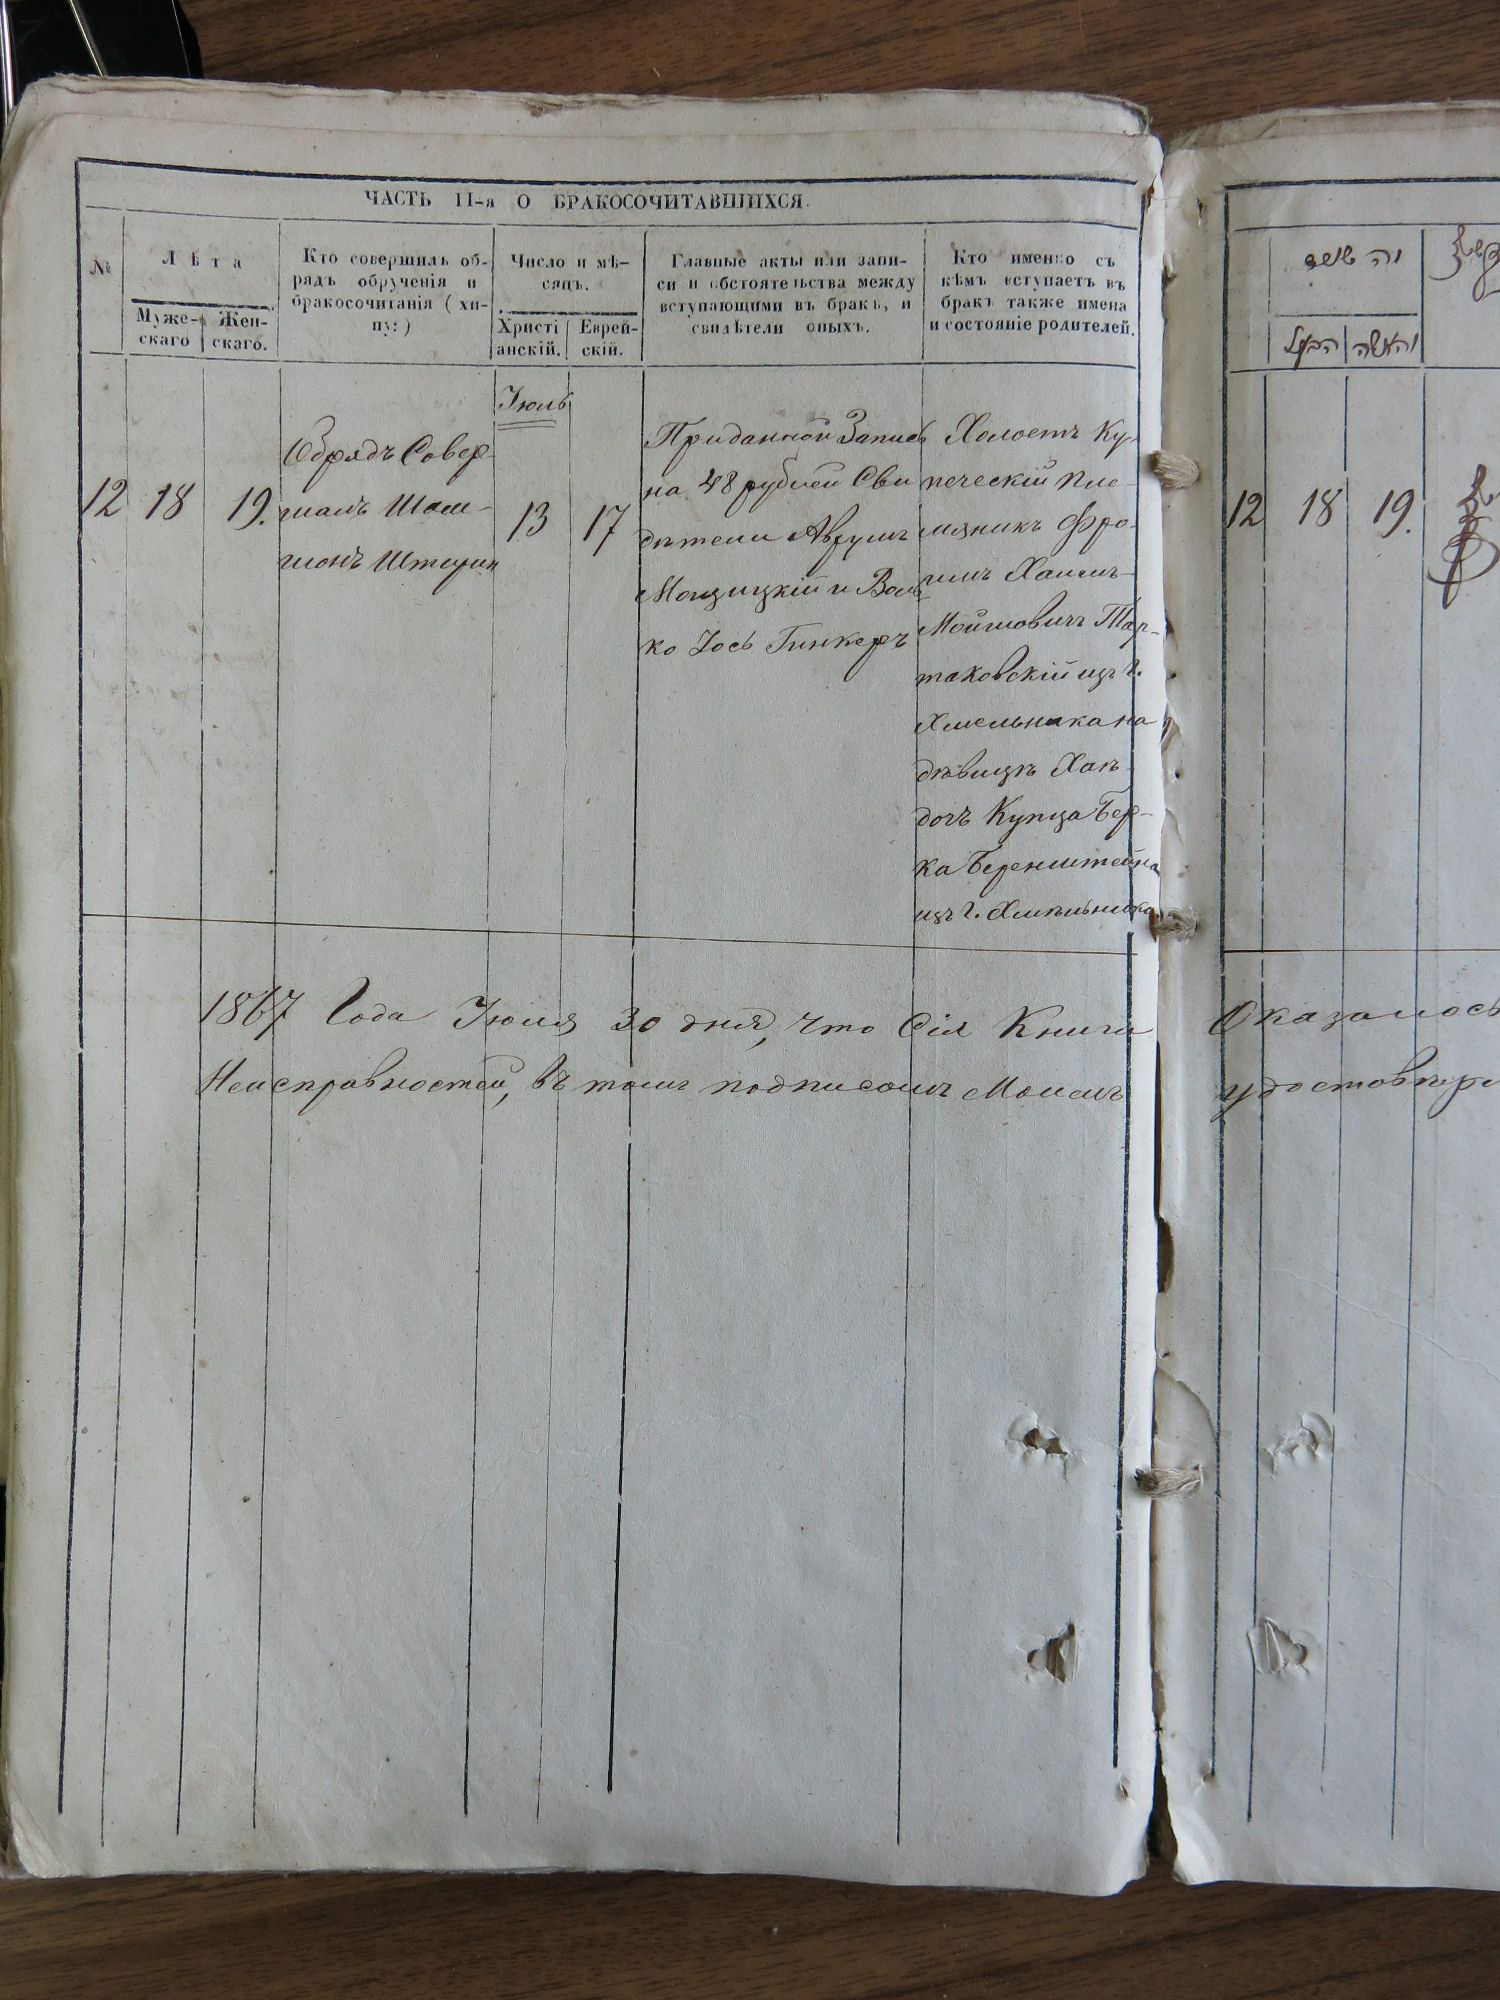 ЧАСТЬ II-я О БРАКОСОЧИТАВШИХСЯ.
№
Лѣта
Муже-
скаго
Жен-
скаго.
Кто совершилъ об-
рядъ обрученія и
бракосочитанія (хи-
пу:)
Число и мѣ-
сяцъ.
Христі
анскій.
Еврей-
скій.
Главные акты или запи-
си и обстоятельства между
вступающими въ бракъ, и
свидѣтели оныхъ.
Кто именно съ
кѣмъ вступаетъ въ
бракъ также имена
и состояніе родителей.
12
18
19.
Обрядъ Совер-
шалъ
Июль
13
17
Приданной Запись
на 48 рубلей Сви
дѣтели Аврумъ
и Воль
ко Іось Гинкеръ
Холостъ Ку-
печескій пле-
мяникъ Фро-
имъ Хаимъ-
Мойшовичъ Тар-
таковскій изъ г.
Хмельника на
дѣвицѣ Хаѣ-
дочъ Купца Бер-
ка Беренштейна
изъ г. Хмѣльника
1867 Года Июля 30 дня, что Сія Книга
Неисправностей, въ томъ подписомъ Моимъ
הבעל
והאשה
12
18
19.
Оказалось
удостовѣря